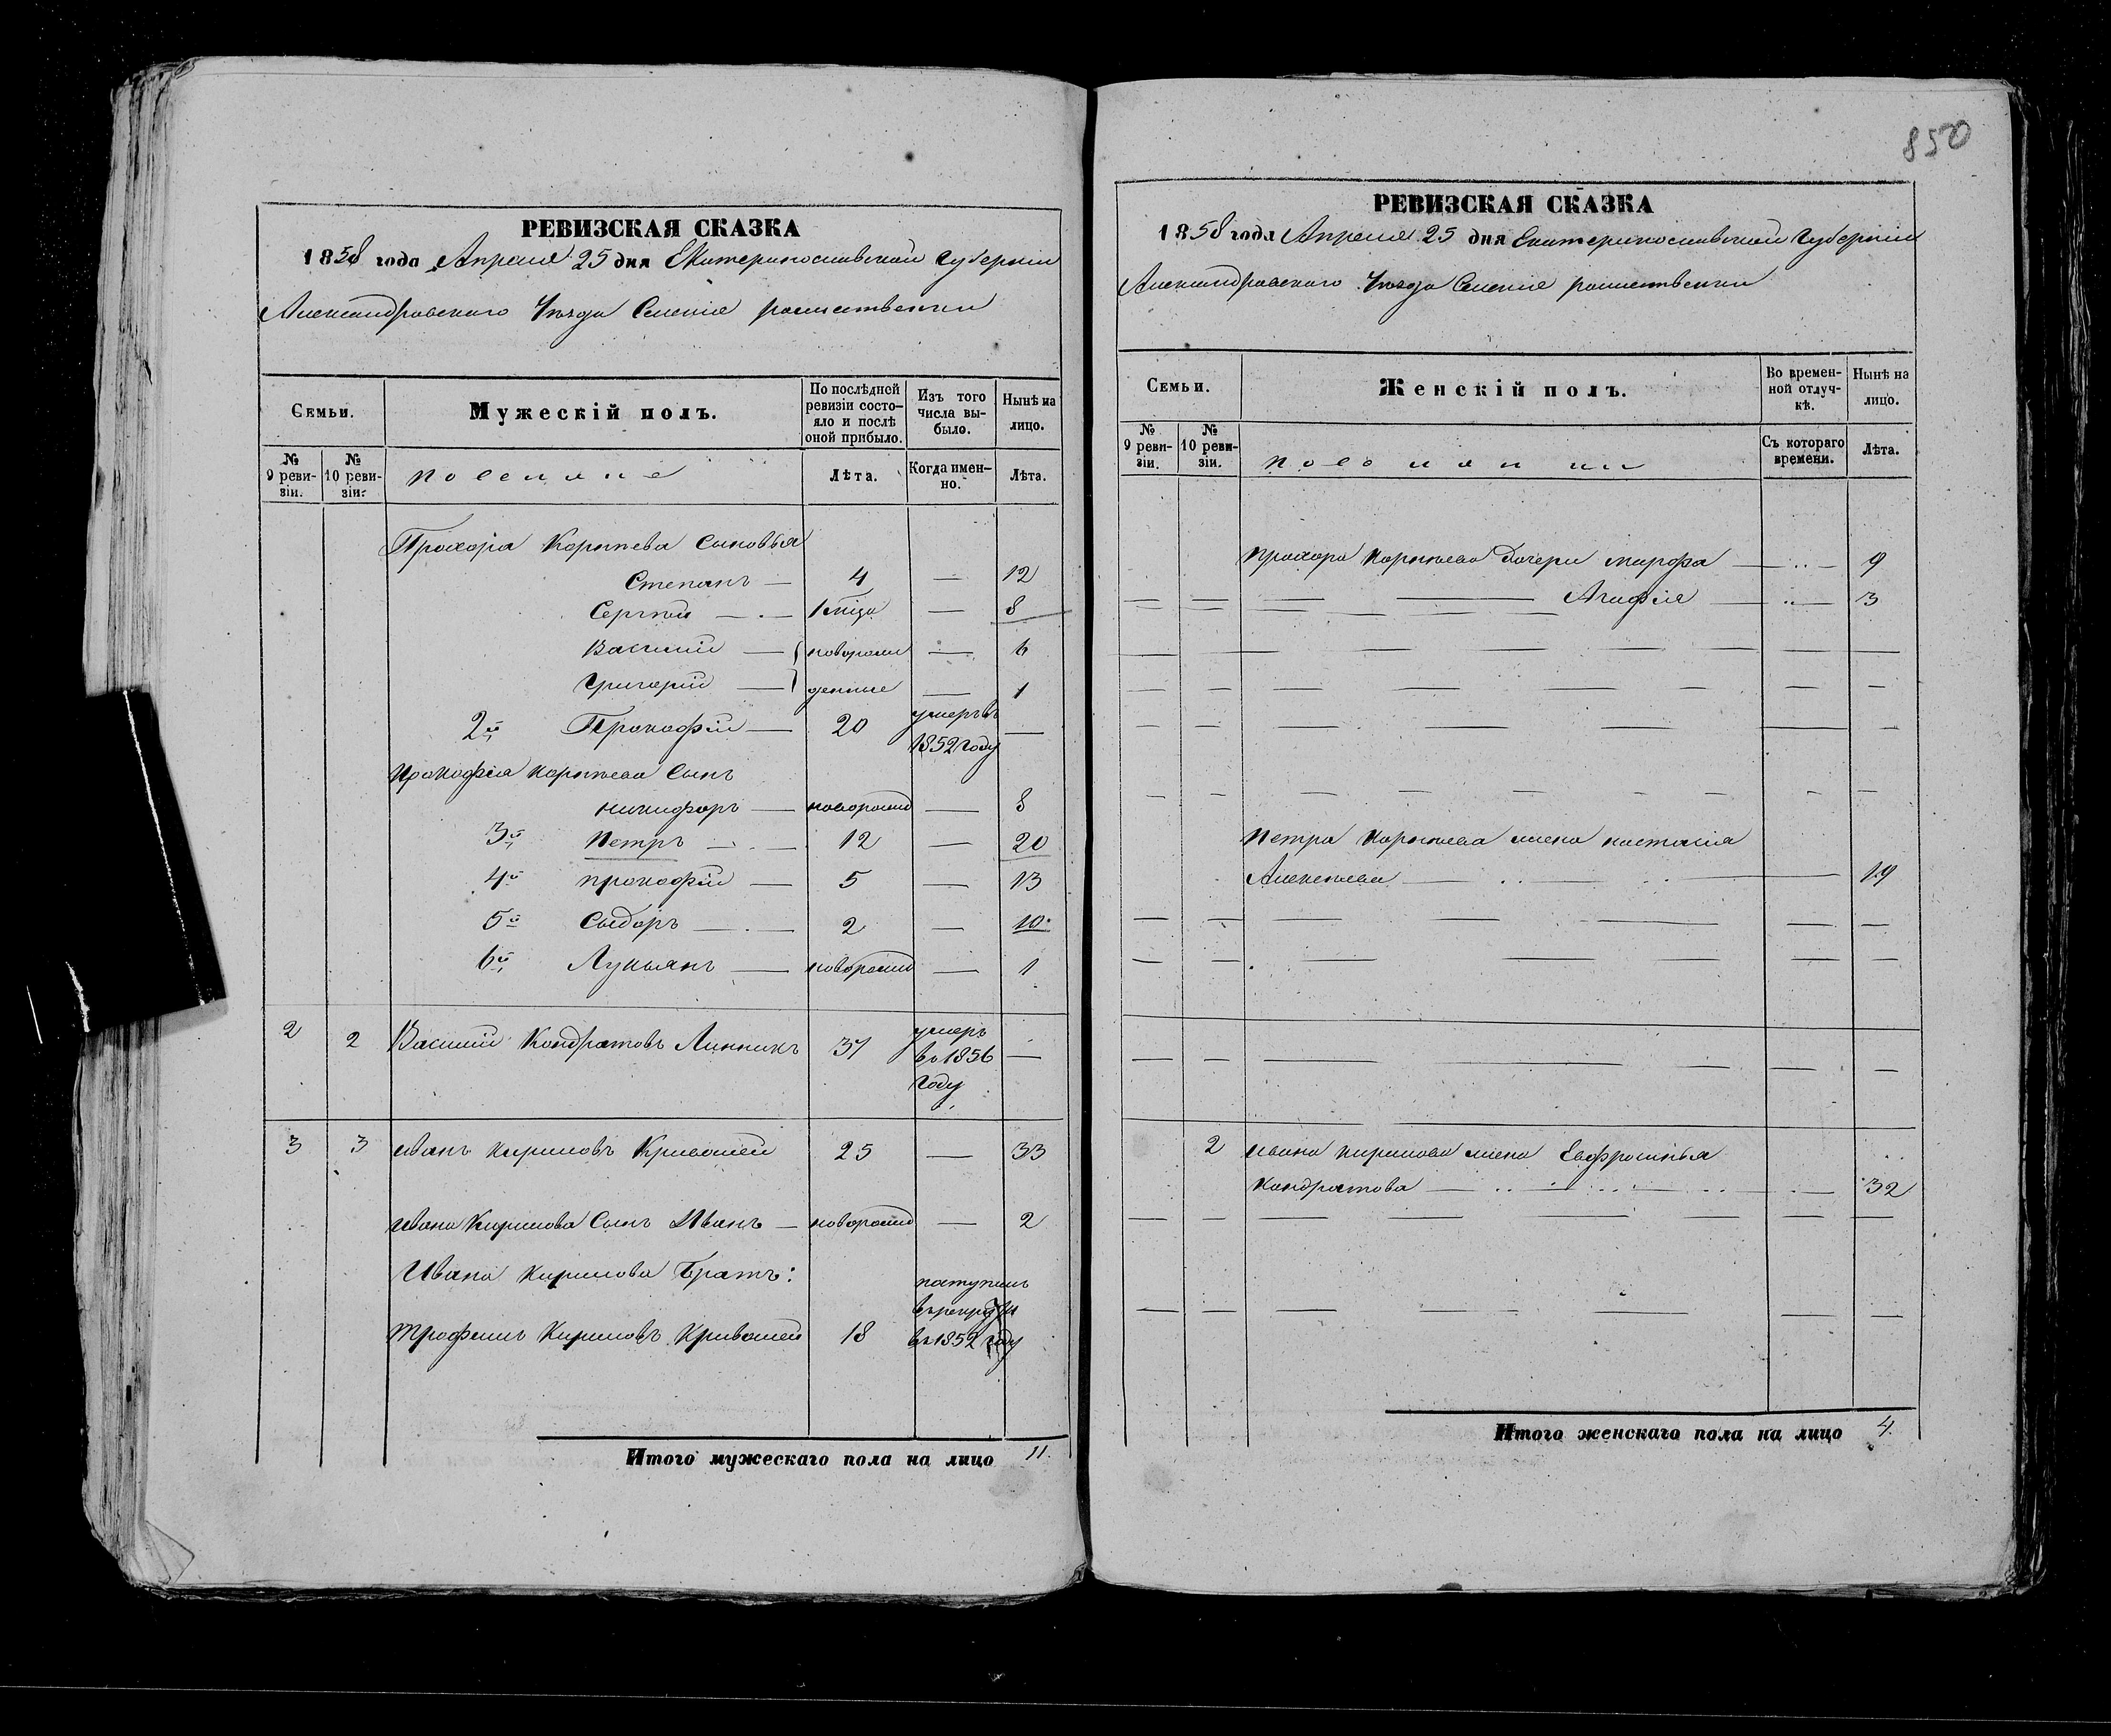 РЕВИЗСКАЯ СКАЗКА
1858 года Апреля 25 дня Екатеринославской Губерніи
Александровскаго Уѣзда Селенія
Семьи.
Мужескій полъ.
По послѣдней ревизіи состояло и послѣ оной прибыло.
Изъ того числа выбыло.
Нынѣ на лицо.
№ 9 ревизіи.
№ 10 ревизіи.
Поселяне
Лѣта.
Когда именно.
Лѣта.
Прохора Корнѣева Сыновья
Степанъ — 4 — 12
Сергѣй — 1 — 8
Василій — новорож — 6
Григорій — денные — 1
2й Прокофій — 20 умеръ въ 1852 году —
Прокофія Корнѣева Сынъ
Никифоръ — новорожд — 8
3й Петръ — 12 — 20
4й Прокофій — 5 — 13
5й Сыдоръ — 2 — 10
6й Лукьянъ — новорожд — 1
2 2 Василій Кондратовъ Линникъ 37 умеръ въ 1856 году —
3 3 Иванъ Кириловъ Кривошей 25 — 33
Ивана Кирилова Сынъ Иванъ — новорожд — 2
Ивана Кирилова Братъ:
Трофимъ Кириловъ Кривошей 18 поступилъ въ рекруты въ 1852 году
Итого мужескаго пола на лицо 11.
850
РЕВИЗСКАЯ СКАЗКА
1858 года Апреля 25 дня Екатеринославской Губерніи
Александровскаго Уѣзда Селенія
Семьи.
Женскій полъ.
Во временной отлучкѣ.
Нынѣ на лицо.
№ 9 ревизіи.
№ 10 ревизіи.
Поселянки
Съ котораго времени.
Лѣта.
Прохора Корнѣева дочери Марфа — 9
Агафія — 3
Петра Корнѣева жена Настасія
Алексѣева — 19
2 Ивана Кирилова жена Евфросинья
Кондратова — 32
Итого женскаго пола на лицо 4.